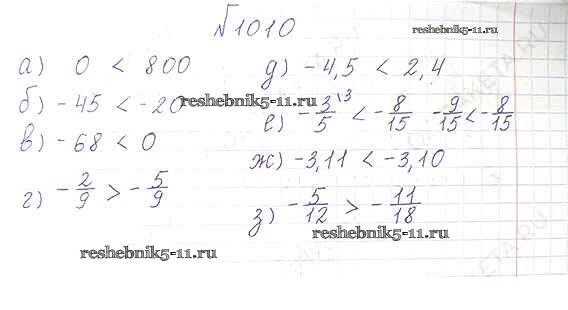 №1010
reshebnik5-11.ru
а) 0 < 800
д) -4,5 < 2,4
б) -45 < -20
reshebnik5-11.ru
е) -3/5 \3 < -8/15 -9/15 < -8/15
в) -68 < 0
ж) -3,11 < -3,10
г) -2/9 > -5/9
з) -5/12 > -11/18
reshebnik5-11.ru
reshebnik5-11.ru